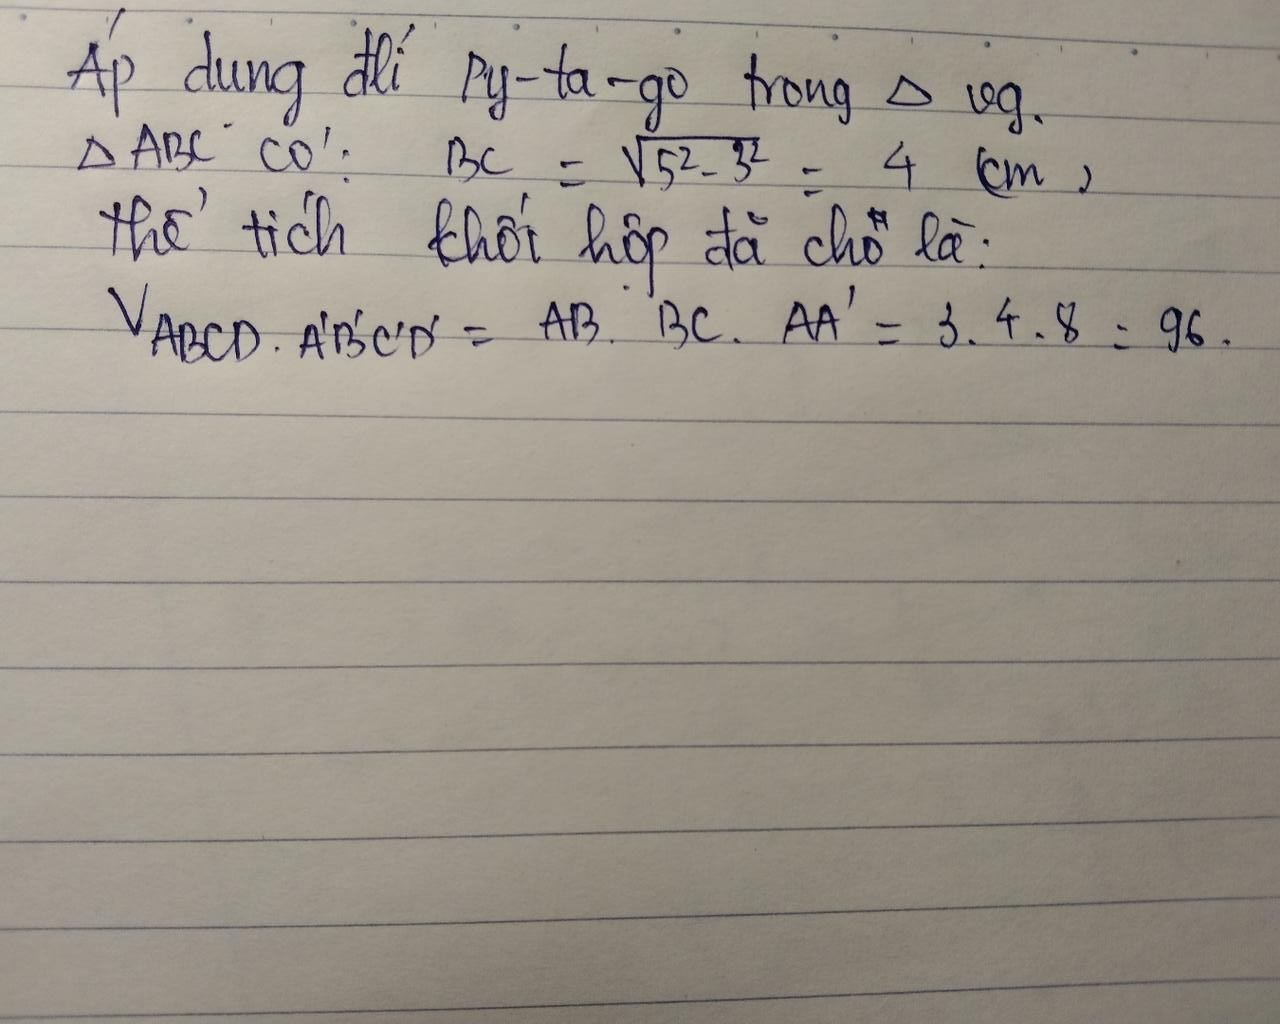 Áp dung đlí Py-ta-go trong △ vg.
△ ABC có: BC = √5²-3² = 4 cm,
thể tích khối hộp đã chô là:
V ABCD.A'B'C'D' = AB. BC. AA' = 3.4.8 = 96.